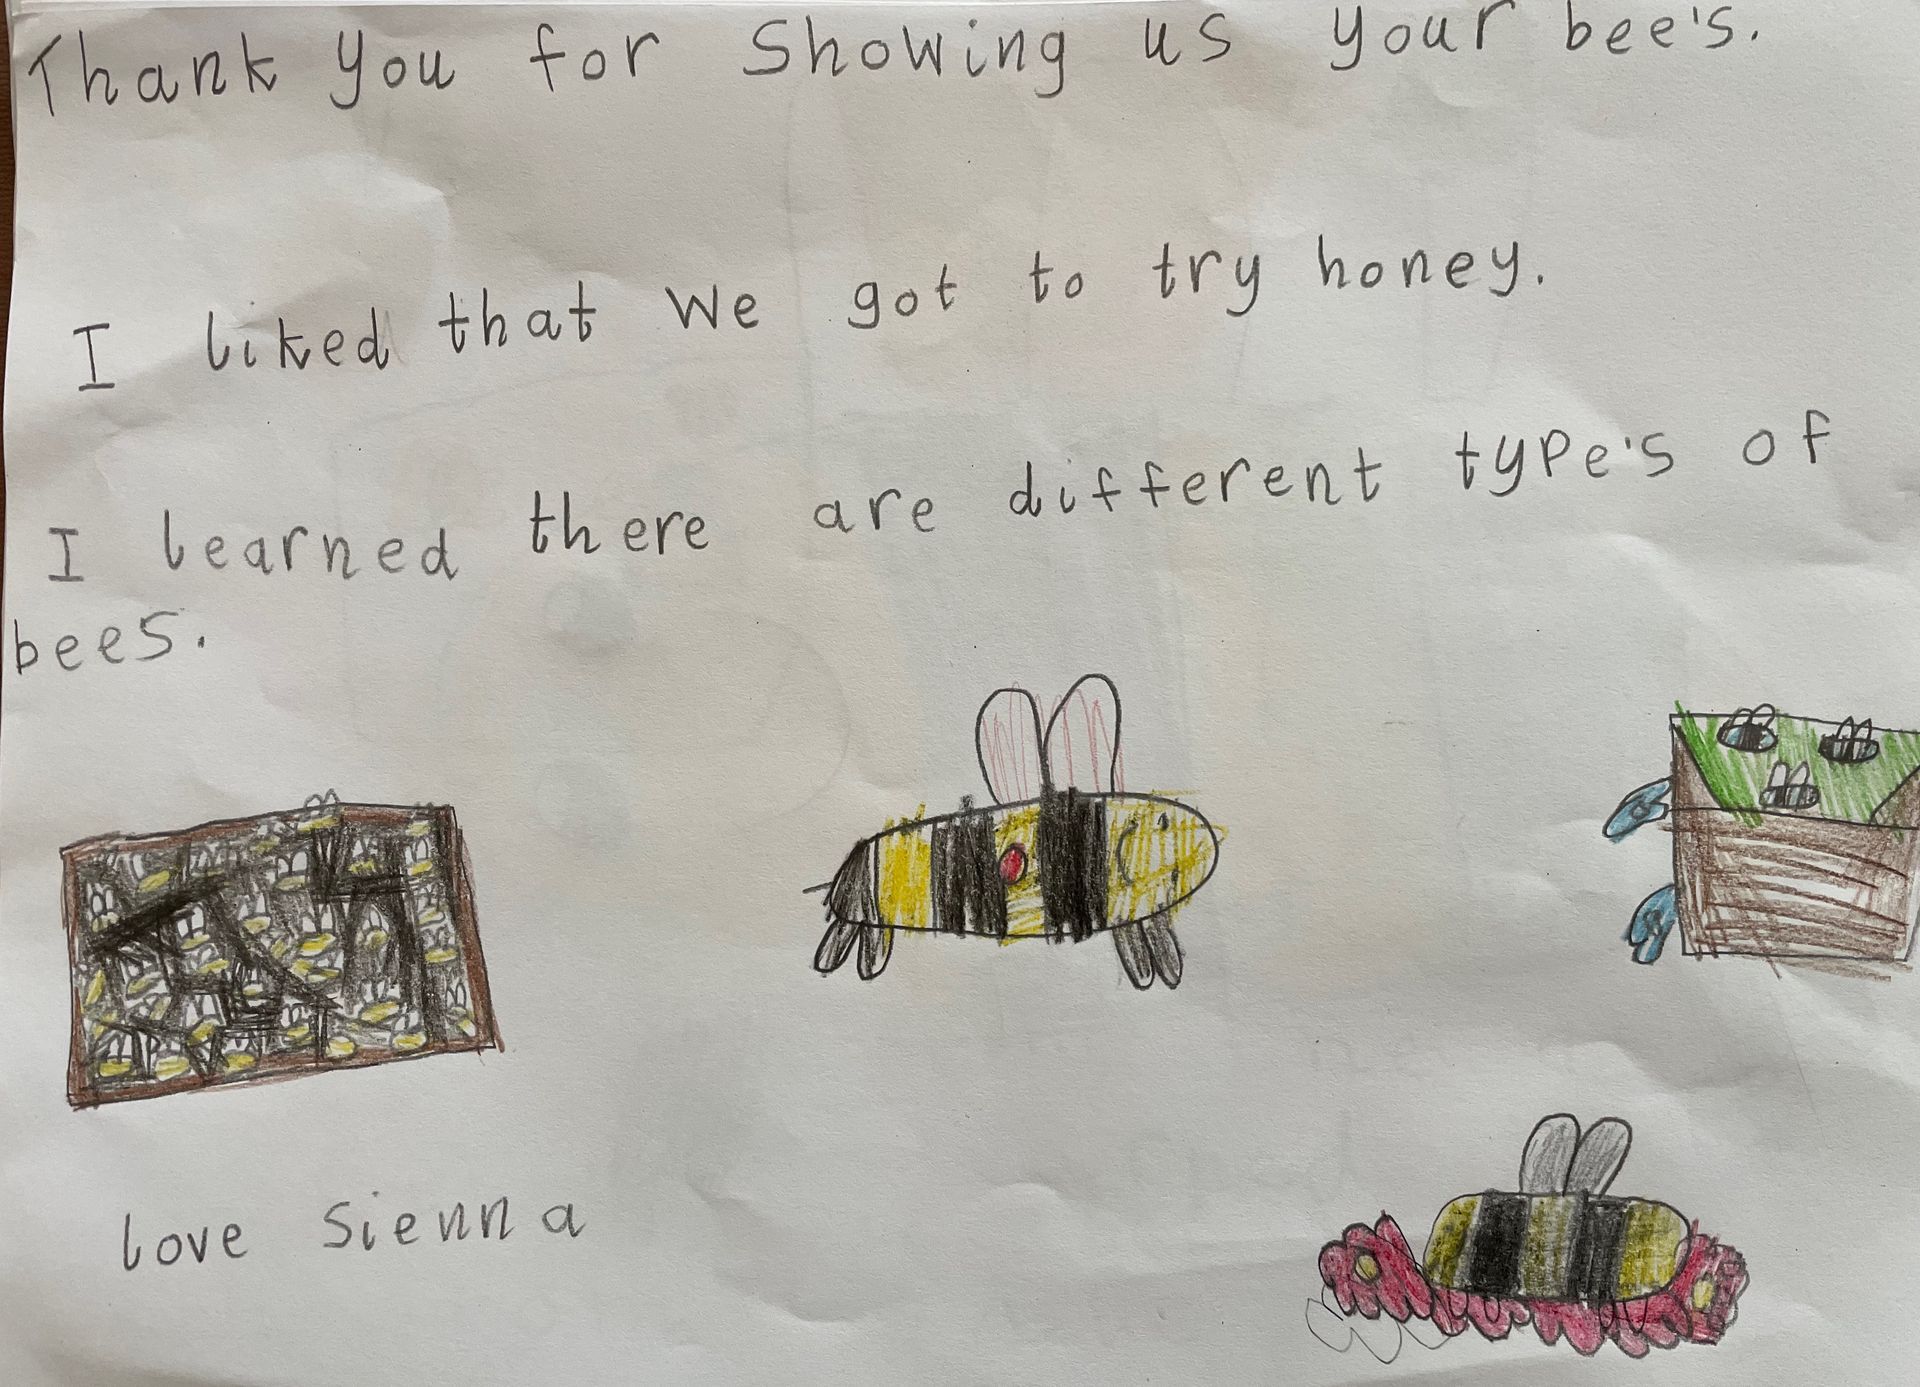 Thank you for Showing us your bee's.
I liked that we got to try honey.
I learned there are different type's of
bees.
love sienna